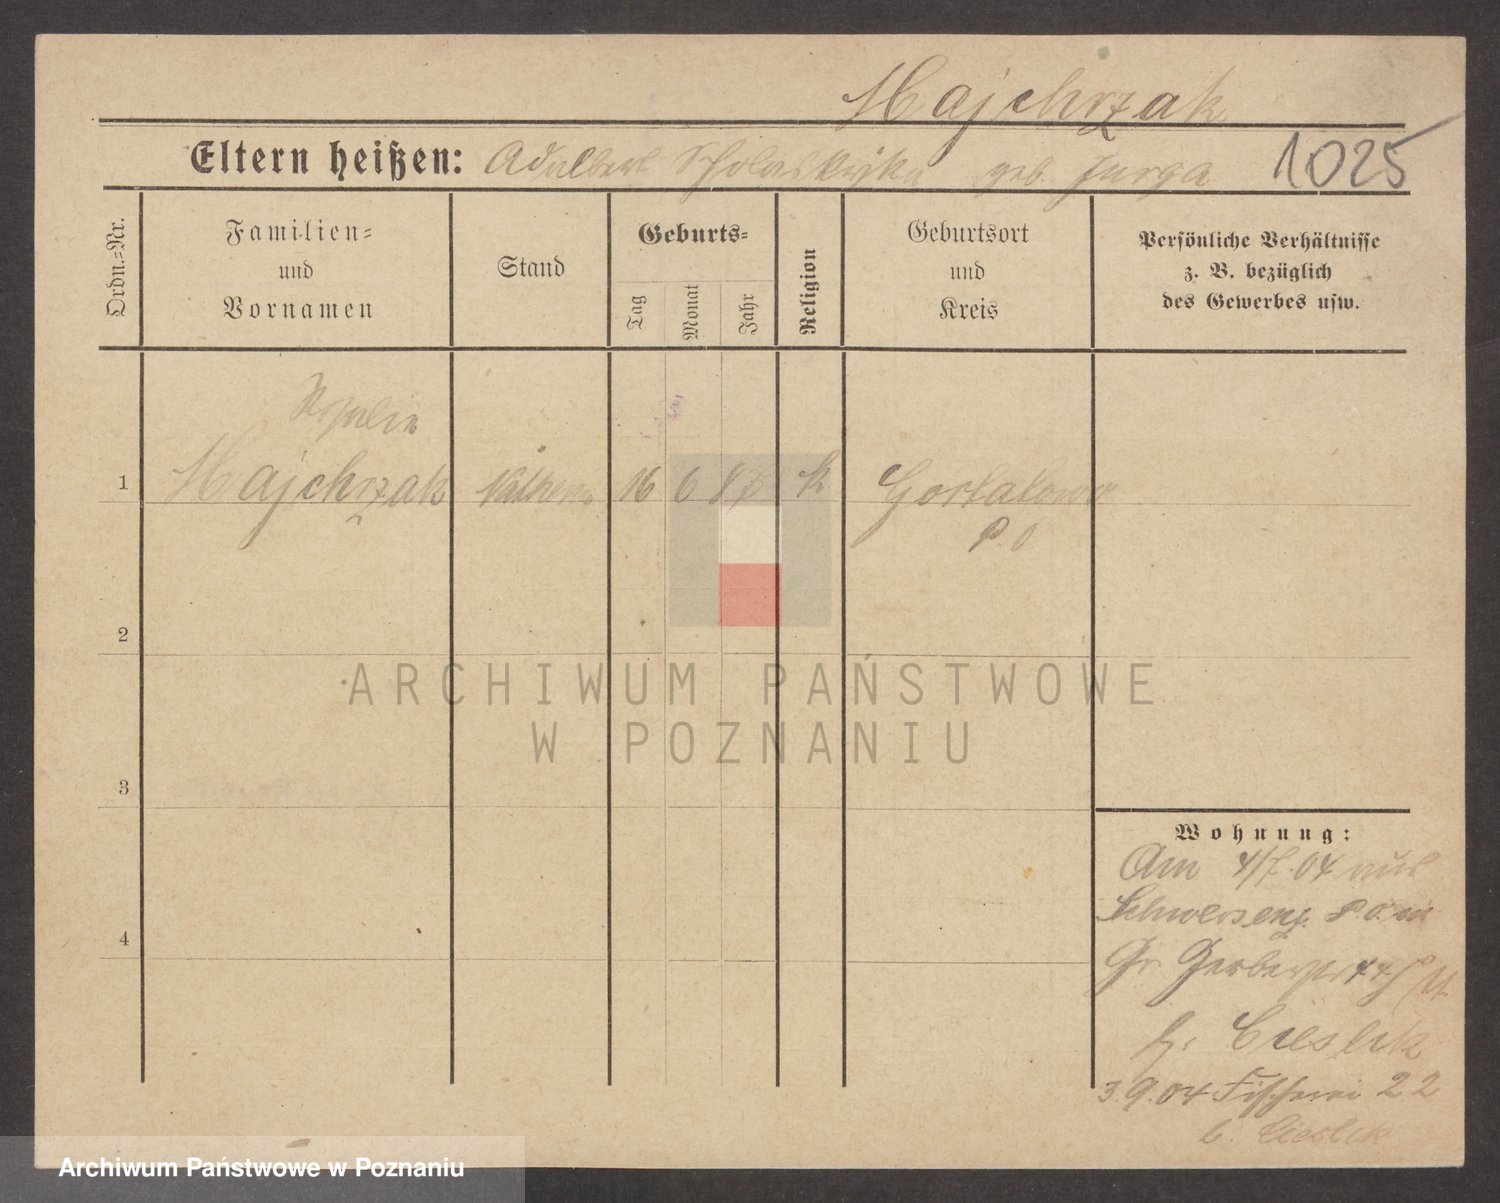 Majchrzak
Eltern heißen: Adalbert Scholastyka geb. Jurga 1025
Ordn.-Nr.
Familien-
und
Vornamen
Stand
Geburts-
Tag
Monat
Jahr
Religion
Geburtsort
und
Kreis
Persönliche Verhältnisse
z. B. bezüglich
des Gewerbes usw.
1
Majchrzak 16 6 k Gortatowo
P. O
2
3
4
ARCHIWUM PAŃSTWOWE
W POZNANIU
Wohnung:
Am 04 aus
Schwersenz P. O. in
Gr. Gerberstr 44
b. Cieslik
3.9.04 Fischerei 22
b. Cieslik
Archiwum Państwowe w Poznaniu